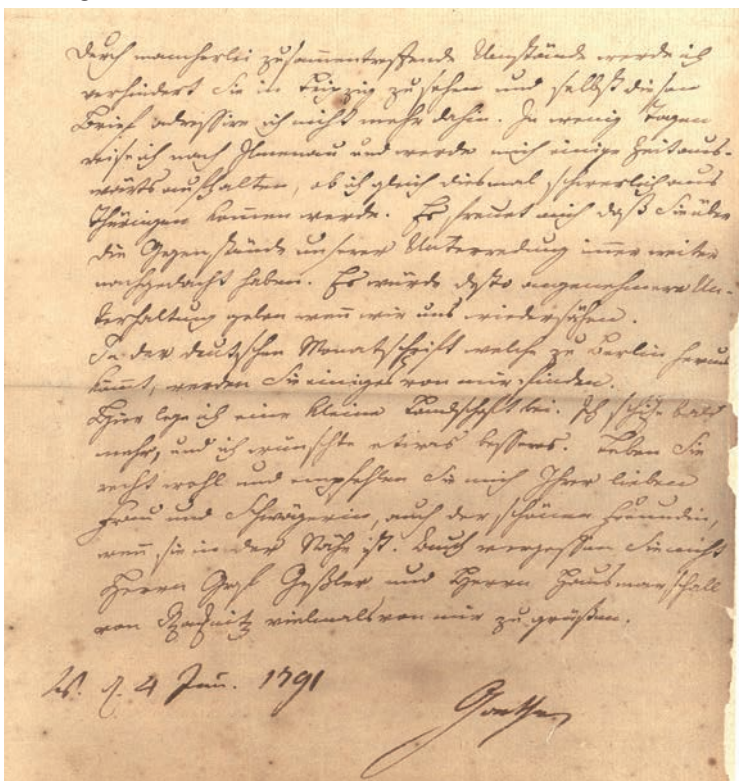 Durch mancherlei zusammentreffende Umstände werde ich
verhindert Sie in Leipzig zu sehen und selbst diesen
Brief adressire ich nicht mehr dahin. In wenig Tagen
reise ich nach Ilmenau und werde mich einige Zeit aus-
wärts aufhalten, ob ich gleich diesmal schwerlich aus
Thüringen kommen werde. Es freuet mich daß Sie über
die Gegenstände unserer Unterredung immer weiter
nachgedacht haben. Es würde desto angenehmere Un-
terhaltung geben wenn wir uns wiedersähen.
In der deutschen Monatschrift welche zu Berlin heraus
kommt, werden Sie einiges von mir finden.
Hier lege ich eine kleine Landschaft bei. Ich schicke bald
mehr, und ich wünschte etwas besseres. Leben Sie
recht wohl und empfehlen Sie mich Ihrer lieben
Frau und Schwägerin, auch der schönen Freundin,
wenn sie in der Nähe ist. Auch vergessen Sie nicht
Herrn Graf Geßler und Herrn Hausmarschall
von Racknitz vielmals von mir zu grüßen.
W. d. 4 Jun. 1791
Goethe